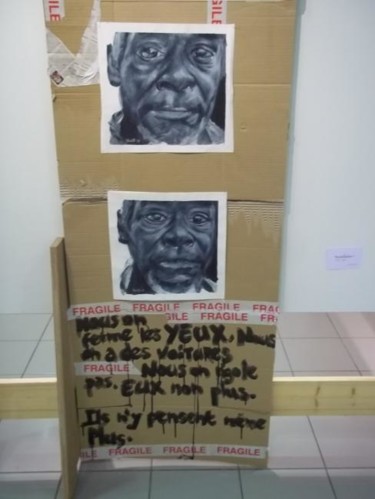 FRAGILE
FRAGILE FRAGILE FRAGILE FRAG
FRAGILE FRAGILE
Nous on
ferme les YEUX. Nous
on a des voitures
FRAGILE Nous on rigole
pas. EUX non plus.
Ils n'y pensent même
Plus.
FRAGILE FRAGILE FRAGILE